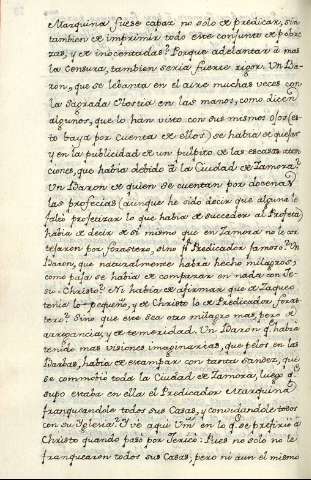 Marquina, fuese capaz no solo de predicar, sin
tambien de imprimir todo este conjunto de pobre
zas, y de inocentadas? Porque adelantar à mas
la censura, tambien seria fuerte rigor. Un Ba
ron, que se lebanta en el aire muchas veces con
la Sagrada Hostia en las manos, como dicen
algunos, que lo han visto con sus mismos ojos (es
to baya por cuenta de ellos) se habia de quejar
y en la publicidad de un pulpito de las escasas aten
ciones, que habia debido à la Ciudad de Zamora?
Un Baron de quien se cuentan por docenas
las profecias (aunque he oido decir que alguna le
faltò profetizar lo que habia de succeder al Profeta
habia de decir de si mismo que en Zamora no le or
tejaron por forastero, sino pr Predicador famoso? Un
Baron, que naturalmente habrà hecho milagros,
como paja se habia de comparar en nada con Je
su-Christo? Ni habia de afirmar que de Zaqueo
tenia lo pequeño, y de Christo lo de Predicador foras
tero? Sino que este sea otro milagro mas, pero de
arrogancia, y de temeridad. Un Baron q.e habrà
tenido mas visiones imaginarias, que pelos en las
Barbas, habia de estampàr con tanta sandez, que
se commobiò toda la Ciudad de Zamora, luego q.e
supo estaba en ella el Predicador Marquina
franqueandole todos sus Casas, y convidandole todos
con su Iglesia? I ve aqui Vm en lo q.e se prefiriò à
Christo quando pasò por Jericò: Pues no solo no le
franquearon todos sus Casas, pero ni aun el mismo